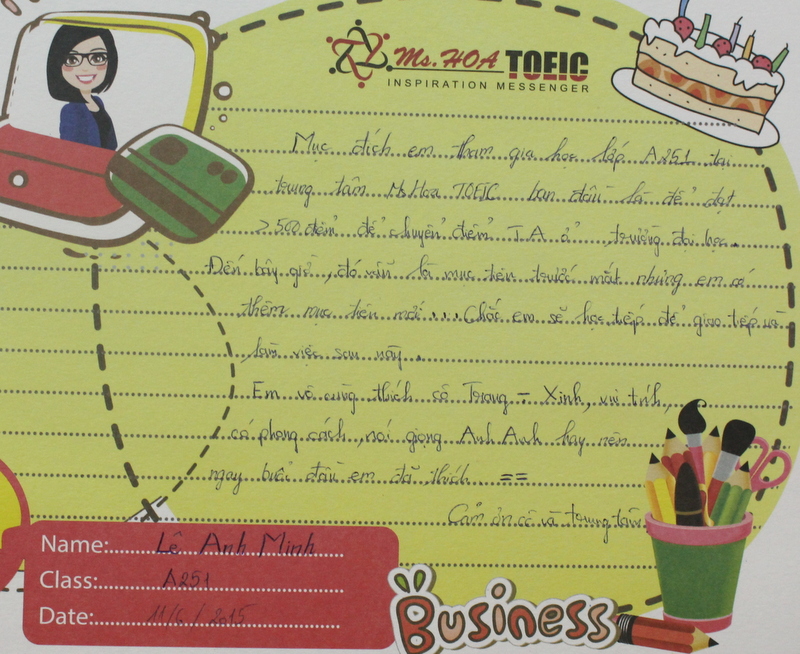 Ms. HOA TOEIC
INSPIRATION MESSENGER
Mục đích em tham gia học lớp A251 tại
trung tâm Ms Hoa TOEIC ban đầu là để đạt
> 500 điểm để chuyển điểm T.A ở trường đại học.
Đến bây giờ, đó vẫn là mục tiêu trước mắt nhưng em có
thêm mục tiêu mới... Chắc em sẽ học tiếp để giao tiếp và
làm việc sau này.
Em vô cùng thích cô Trang - Xinh, vui tính,
có phong cách, nói giọng Anh Anh hay nên
ngay buổi đầu em đã thích. ==
Cảm ơn cô và trung tâm
Name: Lê Anh Minh
Class: A251
Date: 11/6/2015
Business